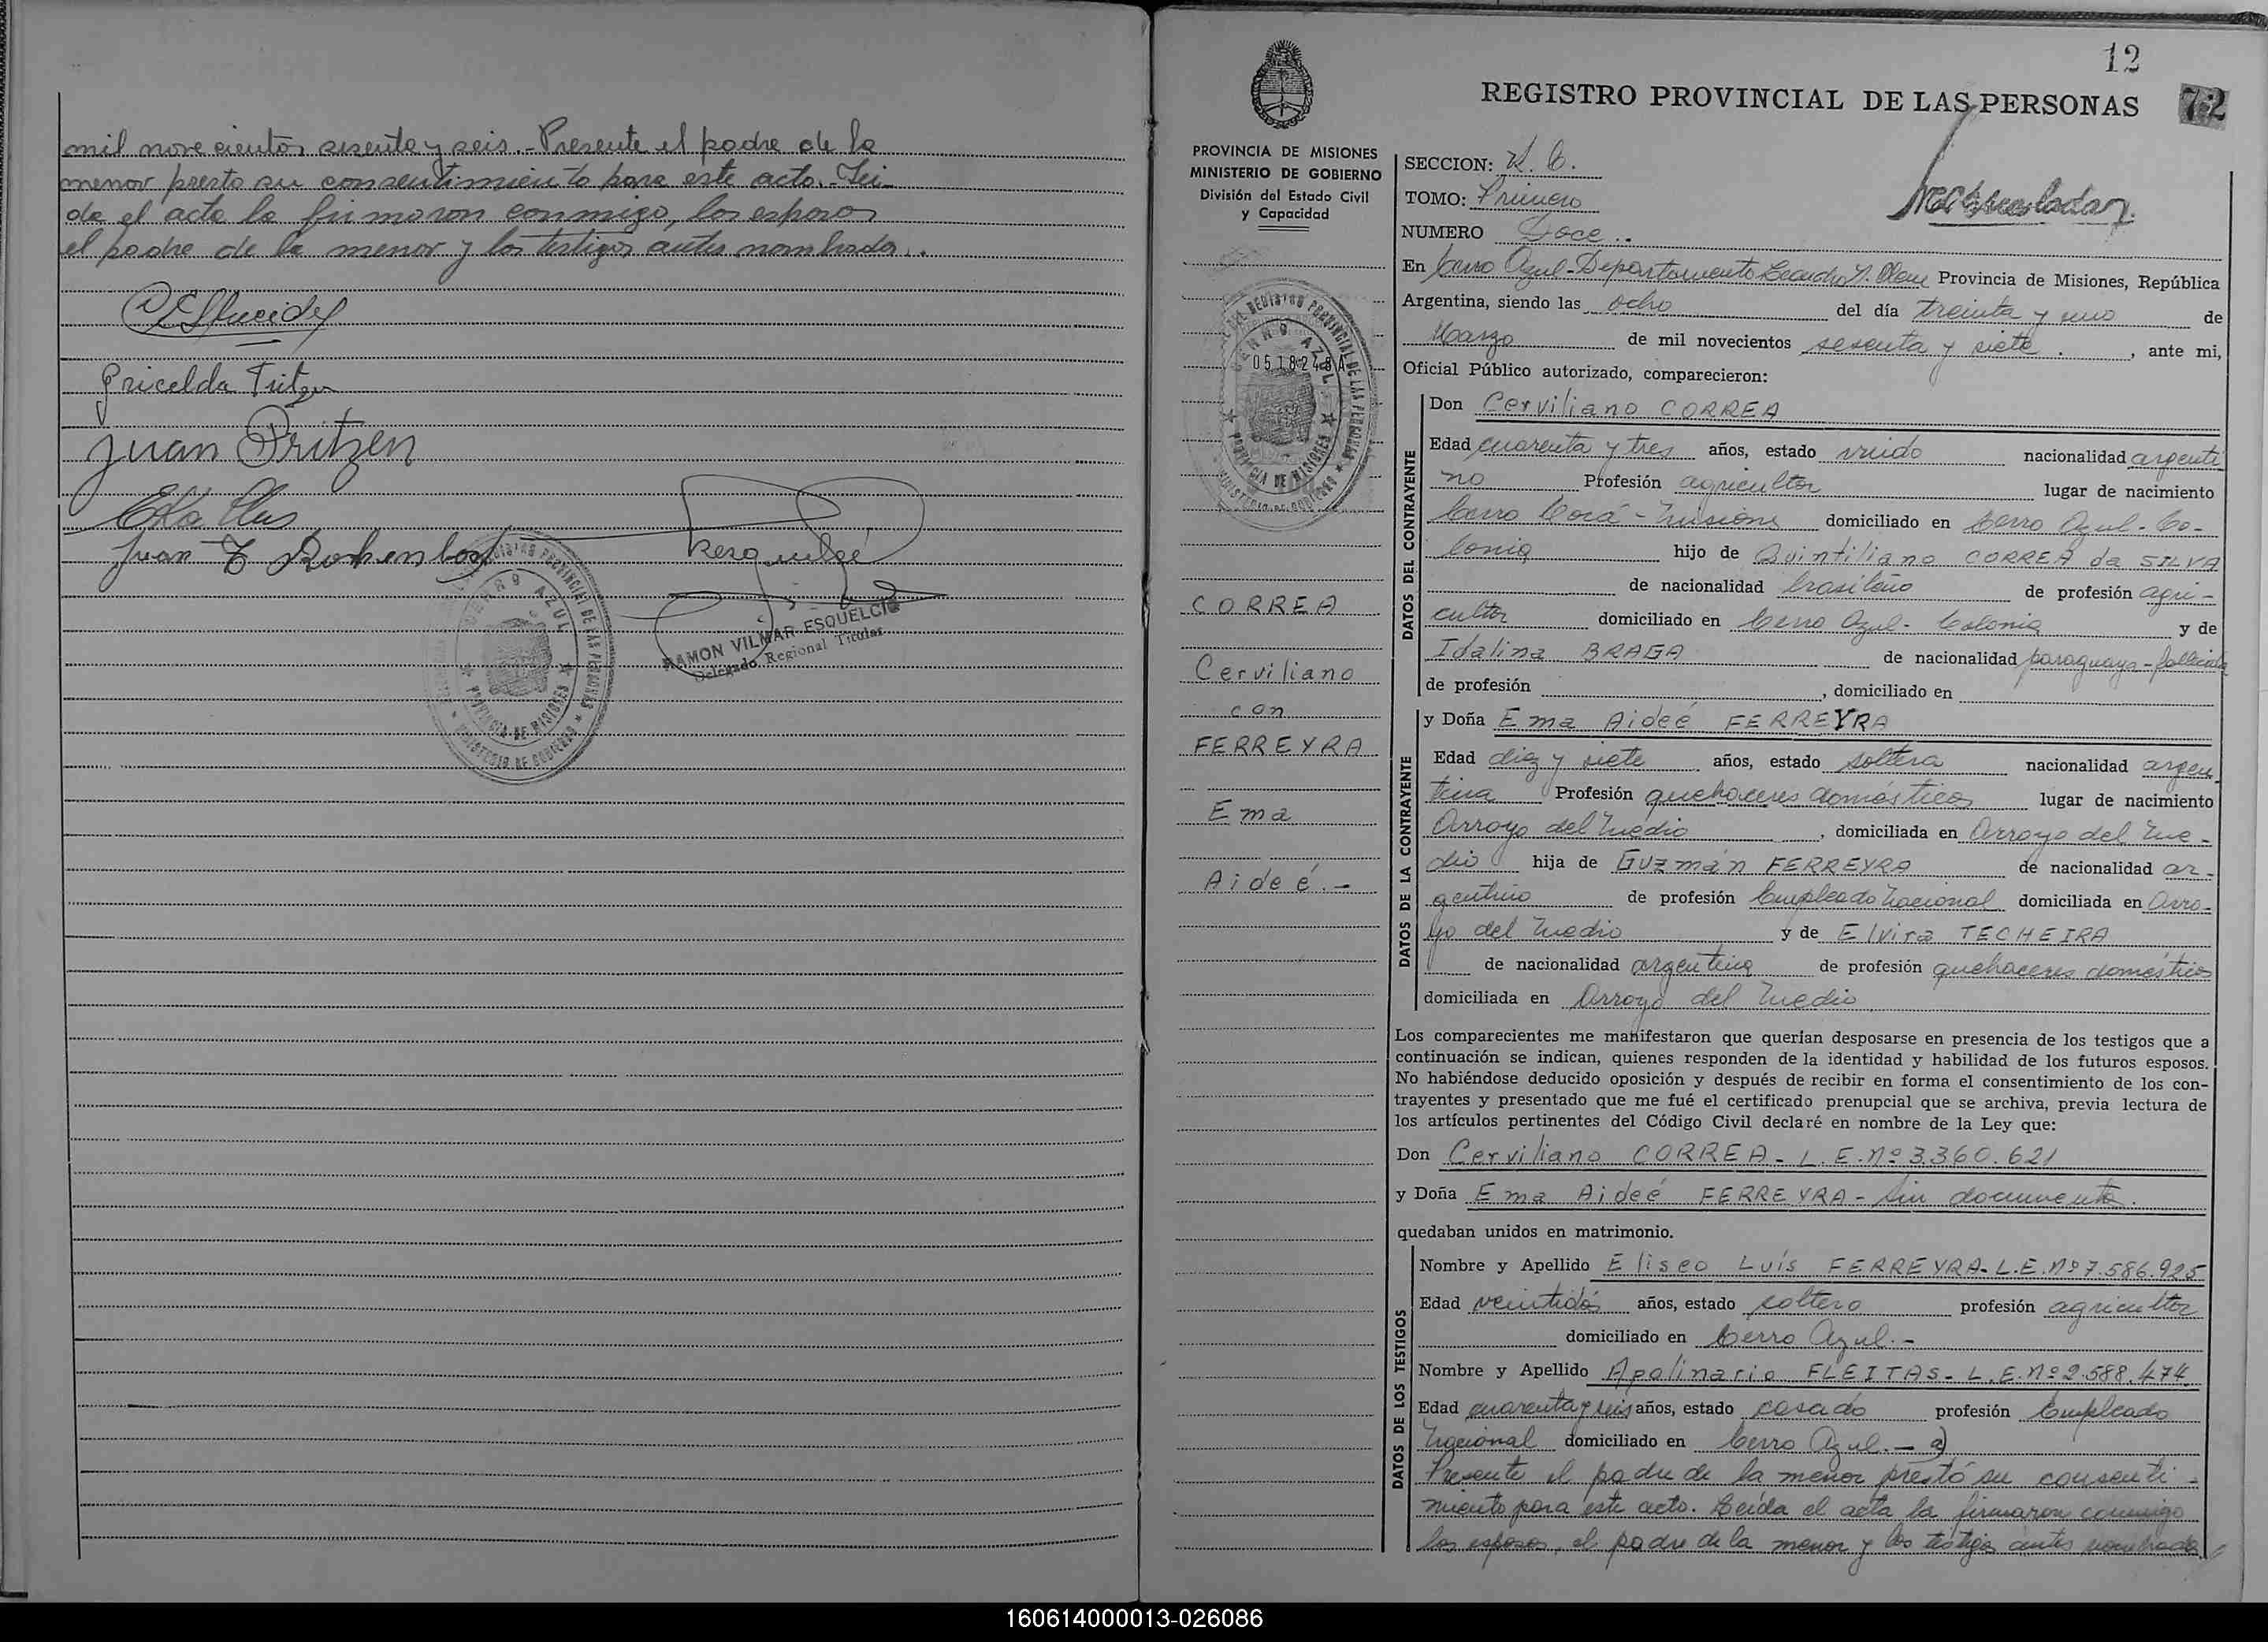 mil nove cientos sesenta y seis.- Presente el padre de la
menor presto su consentimiento para este acto.- Lei-
da el acta la firmaron conmigo, los esposos
el padre de la menor y los testigos antes nombrados..
Gricelda Tritzen
Juan Pritzen
Juan E Rohenbach
REGISTRO PROVINCIAL DE LAS PERSONAS
CERRO AZUL
PROVINCIA DE MISIONES
MINISTERIO DE GOBIERNO
RAMON VILMAR ESQUELCIO
Delegado Regional Titular
12
REGISTRO PROVINCIAL DE LAS PERSONAS
72
PROVINCIA DE MISIONES
MINISTERIO DE GOBIERNO
División del Estado Civil
y Capacidad
051824 8A
CORREA
Cerviliano
con
FERREYRA
Ema
Aideé.-
SECCION:
TOMO: Primero
NUMERO Doce..
En Cerro Azul-Departamento Leandro N. Alem Provincia de Misiones, República
Argentina, siendo las ocho del día treinta y uno de
Marzo de mil novecientos sesenta y siete. , ante mi,
Oficial Público autorizado, comparecieron:
DATOS DEL CONTRAYENTE
Don Cerviliano CORREA
Edad cuarenta y tres años, estado viudo nacionalidad argenti
no Profesión agricultor lugar de nacimiento
Cerro Corá-Misiones domiciliado en Cerro Azul-Co-
lonia hijo de Quintiliano CORREA da SILVA
de nacionalidad brasileño de profesión agri-
cultor domiciliado en Cerro Azul- Colonia y de
Idalina BRAGA de nacionalidad paraguaya-fallecida
de profesión , domiciliado en
DATOS DE LA CONTRAYENTE
y Doña Ema Aideé FERREYRA
Edad diez y siete años, estado soltera nacionalidad argen
tina Profesión quehaceres domésticos lugar de nacimiento
Arroyo del Medio , domiciliada en Arroyo del Me-
dio hija de Guzmán FERREYRA de nacionalidad ar-
gentino de profesión Empleado Nacional domiciliada en Arro-
yo del Medio y de Elvira TECHEIRA
de nacionalidad argentina de profesión quehaceres domésticos
domiciliada en Arroyo del Medio
Los comparecientes me manifestaron que querían desposarse en presencia de los testigos que a
continuación se indican, quienes responden de la identidad y habilidad de los futuros esposos.
No habiéndose deducido oposición y después de recibir en forma el consentimiento de los con-
trayentes y presentado que me fué el certificado prenupcial que se archiva, previa lectura de
los artículos pertinentes del Código Civil declaré en nombre de la Ley que:
Don Cerviliano CORREA- L.E.Nº 3.360.621
y Doña Ema Aideé FERREYRA- sin documento.
quedaban unidos en matrimonio.
DATOS DE LOS TESTIGOS
Nombre y Apellido Eliseo Luís FERREYRA-L.E.Nº7.586.925
Edad veintidós años, estado soltero profesión agricultor
domiciliado en Cerro Azul.-
Nombre y Apellido Apolinario FLEITAS- L.E.Nº2.588.474
Edad cuarenta y seis años, estado casado profesión Empleado
Nacional domiciliado en Cerro Azul.- a)
Presente el padre de la menor prestó su consenti-
miento para este acto. Leída el acta la firmaron conmigo
los esposos, el padre de la menor y los testigos antes nombrados
160614000013-026086